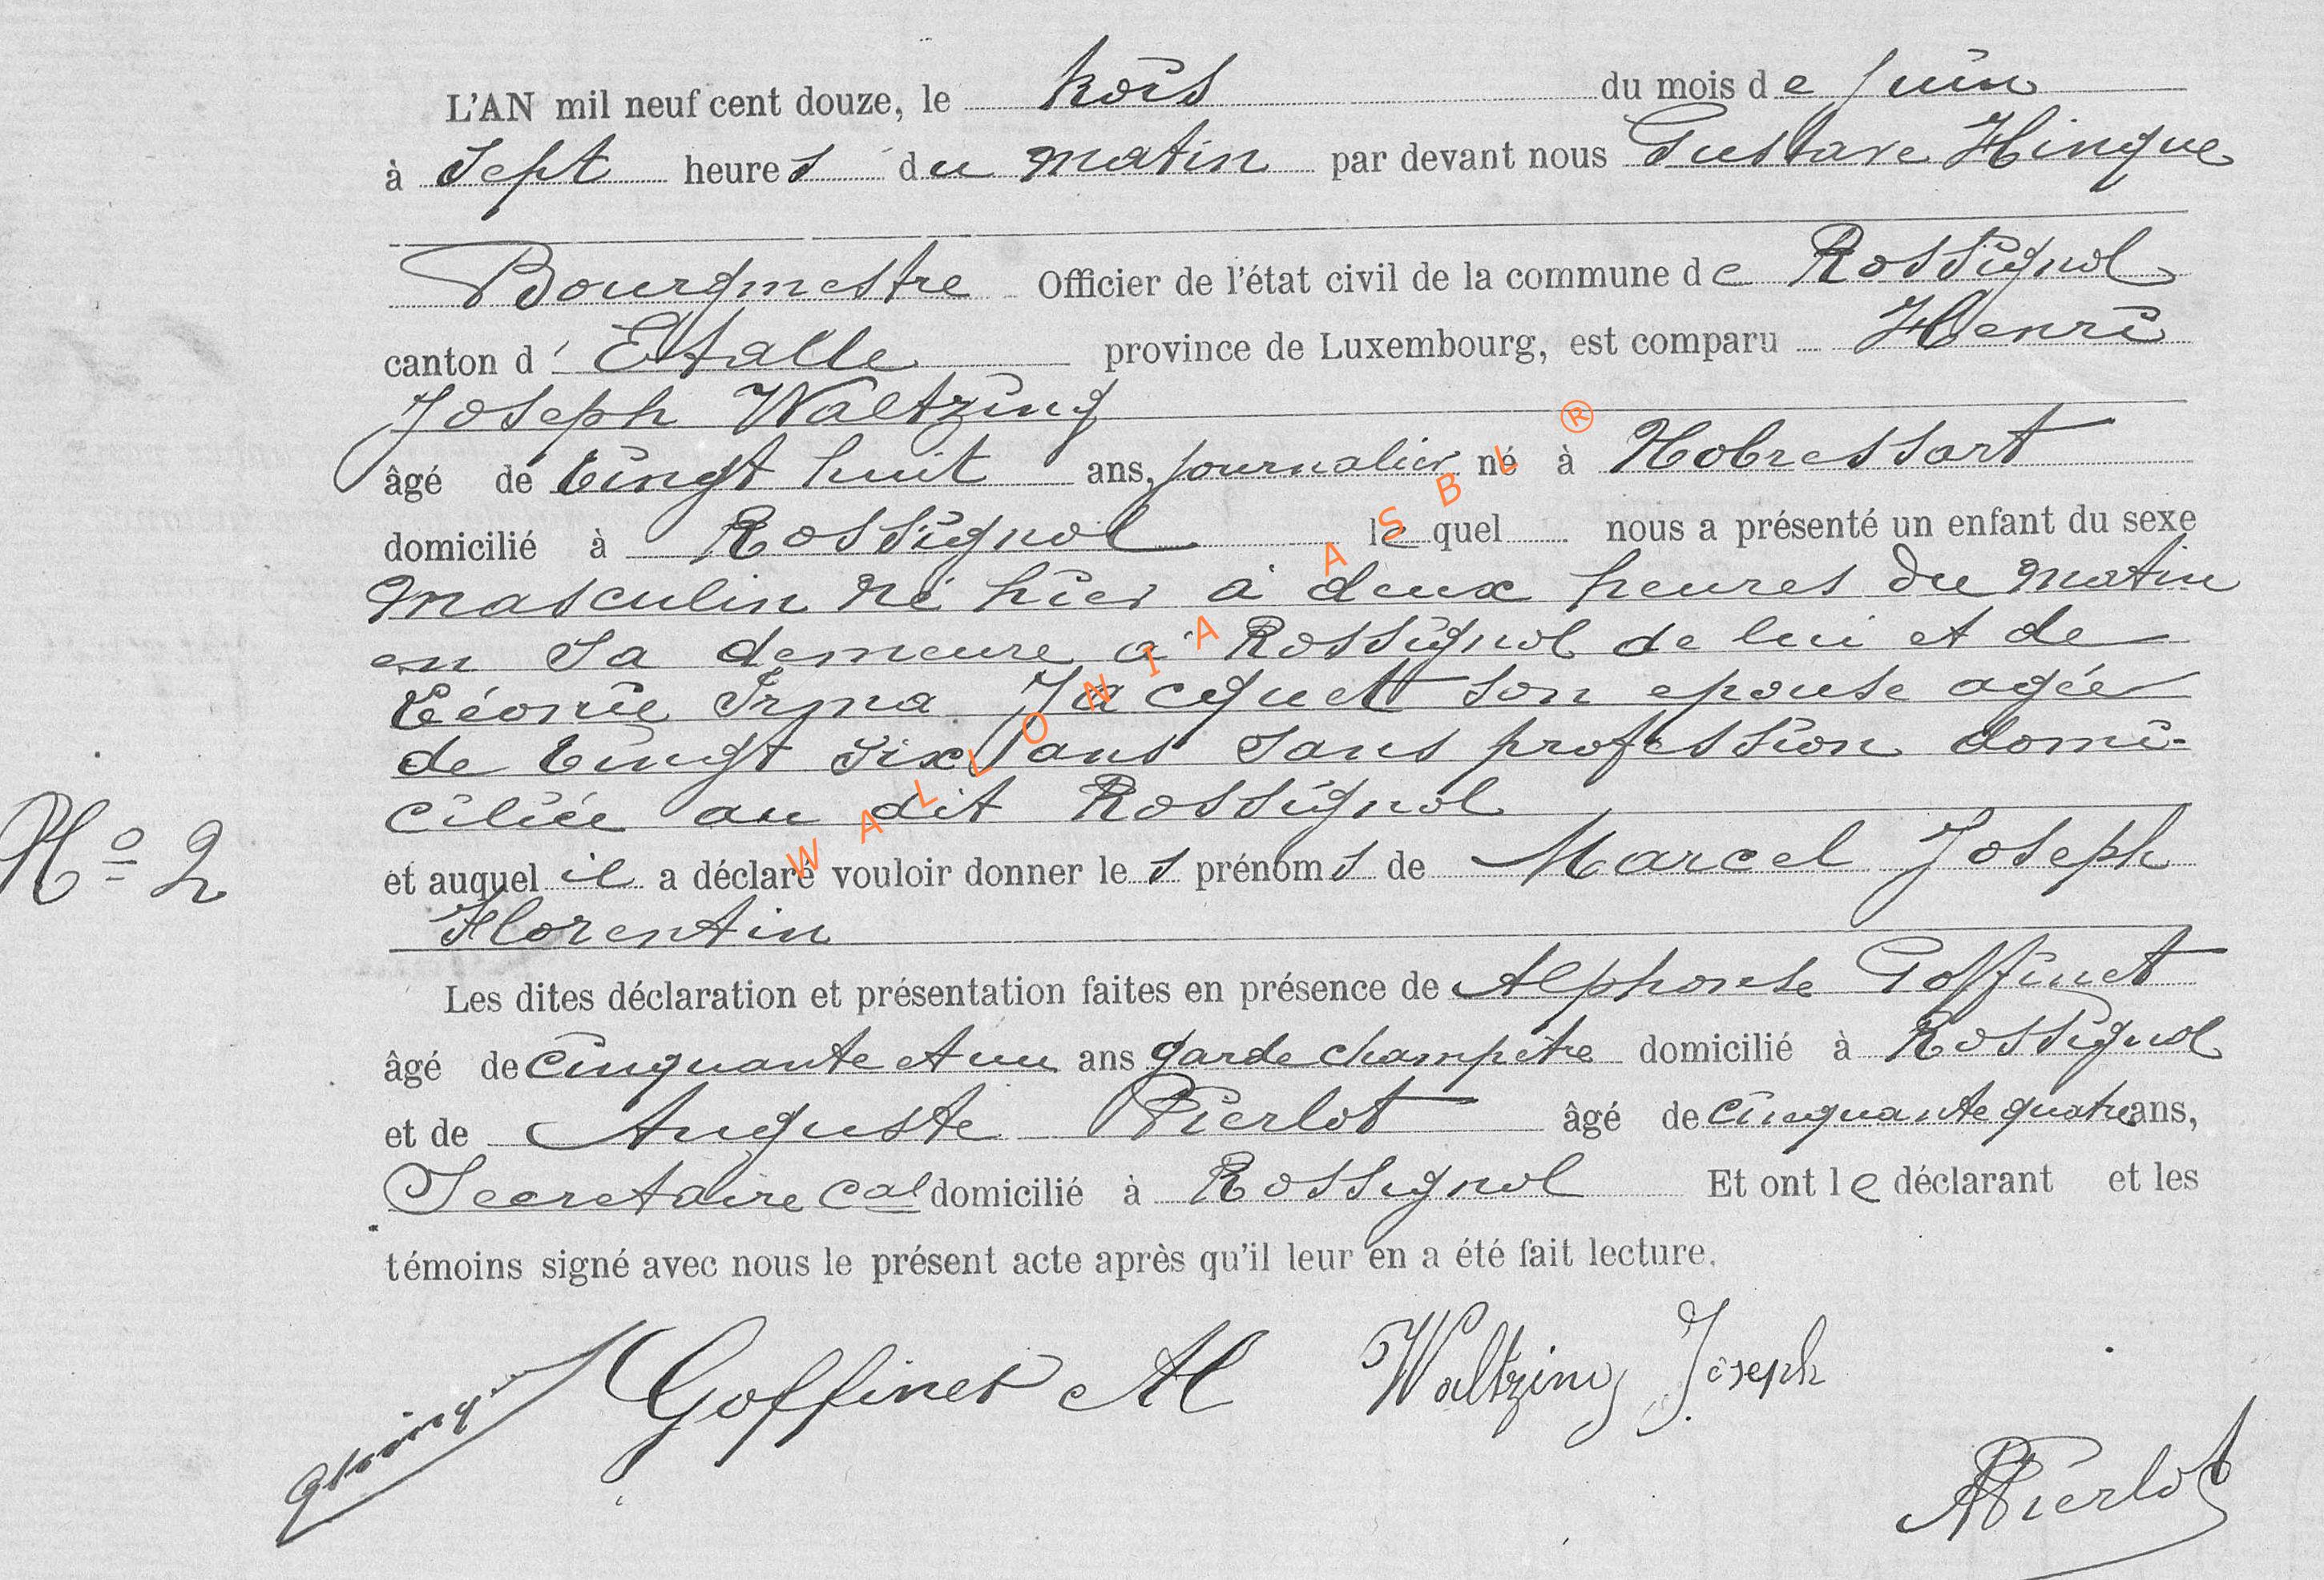 L'AN mil neuf cent douze, le trois du mois de juin
à Sept heures du matin par devant nous Gustave Hinque
Bourgmestre Officier de l'état civil de la commune de Rossignol
canton d'Etalle province de Luxembourg, est comparu Henri
Joseph Waltzing
âgé de vingt huit ans, journalier né à Nobressart
domicilié à Rossignol le quel nous a présenté un enfant du sexe
masculin né hier à deux heures du matin
en sa demeure à Rossignol de lui et de
Léonie Irma Jacquet son epouse agée
de vingt six ans sans profession domi-
ciliée au dit Rossignol
N° 2
et auquel il a déclaré vouloir donner les prénoms de Marcel Joseph
Florentin
Les dites déclaration et présentation faites en présence de Alphonse Goffinet
âgé de cinquante et un ans garde champêtre domicilié à Rossignol
et de Auguste Pierlot âgé de cinquante quatre ans,
Secretaire cal domicilié à Rossignol Et ont le déclarant et les
témoins signé avec nous le présent acte après qu'il leur en a été fait lecture.
Goffinet Al Waltzing Joseph
APierlot
WALLONIA ASBL ®